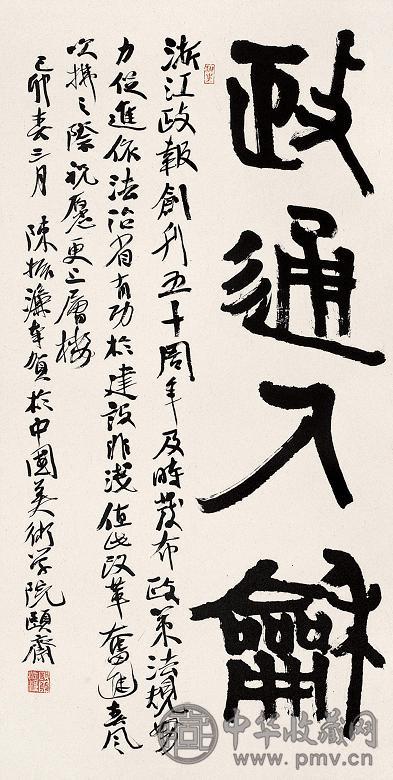 政通人龢
浙江政報創刊五十周年及時發布政策法規努
力促進依法治省有功於建設非淺值此改革奮進春風
吹拂之際祝愿更上層樓
己卯春三月 陳振濂奉賀於中國美術学院頤齋
中华收藏网
www.pmv.cn